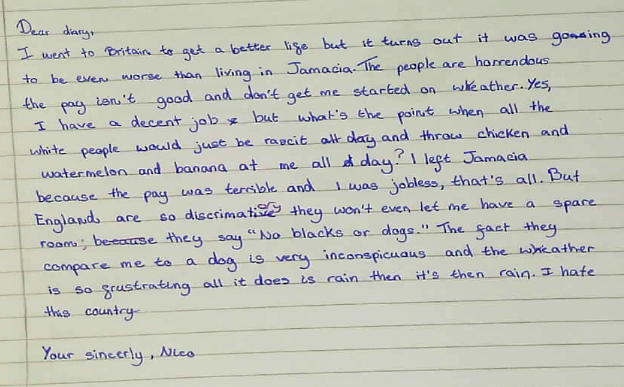 Dear diary,
I went to Britain to get a better life but it turns out it was going
to be even worse than living in Jamacia. The people are horrendous
the pay isn't good and don't get me started on wheather. Yes,
I have a decent job but what's the point when all the
white people would just be rascit all day and throw chicken and
watermelon and banana at me all day? I left Jamacia
because the pay was terrible and I was jobless, that's all. But
England are so discriminatory they won't even let me have a spare
room; because they say "No blacks or dogs." The fact they
compare me to a dog is very inconspicuous and the wheather
is so frustrating all it does is rain then it's then rain. I hate
this country
Your sincerly, Nico